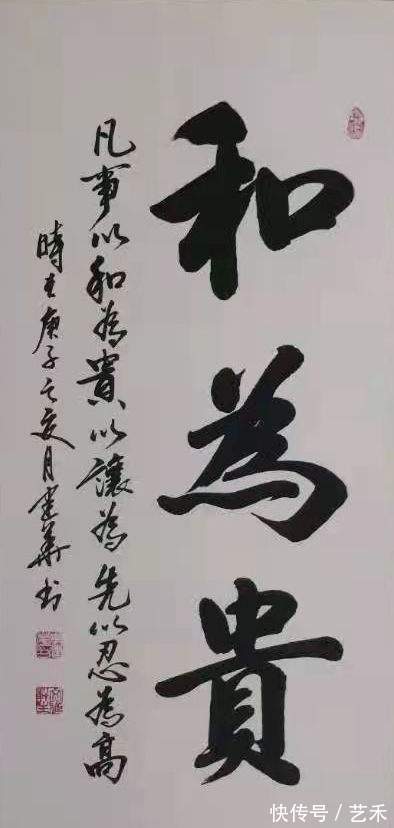 和為貴
凡事以和為貴以讓為先以忍為高
時在庚子之夏月建華书
快传号/艺禾